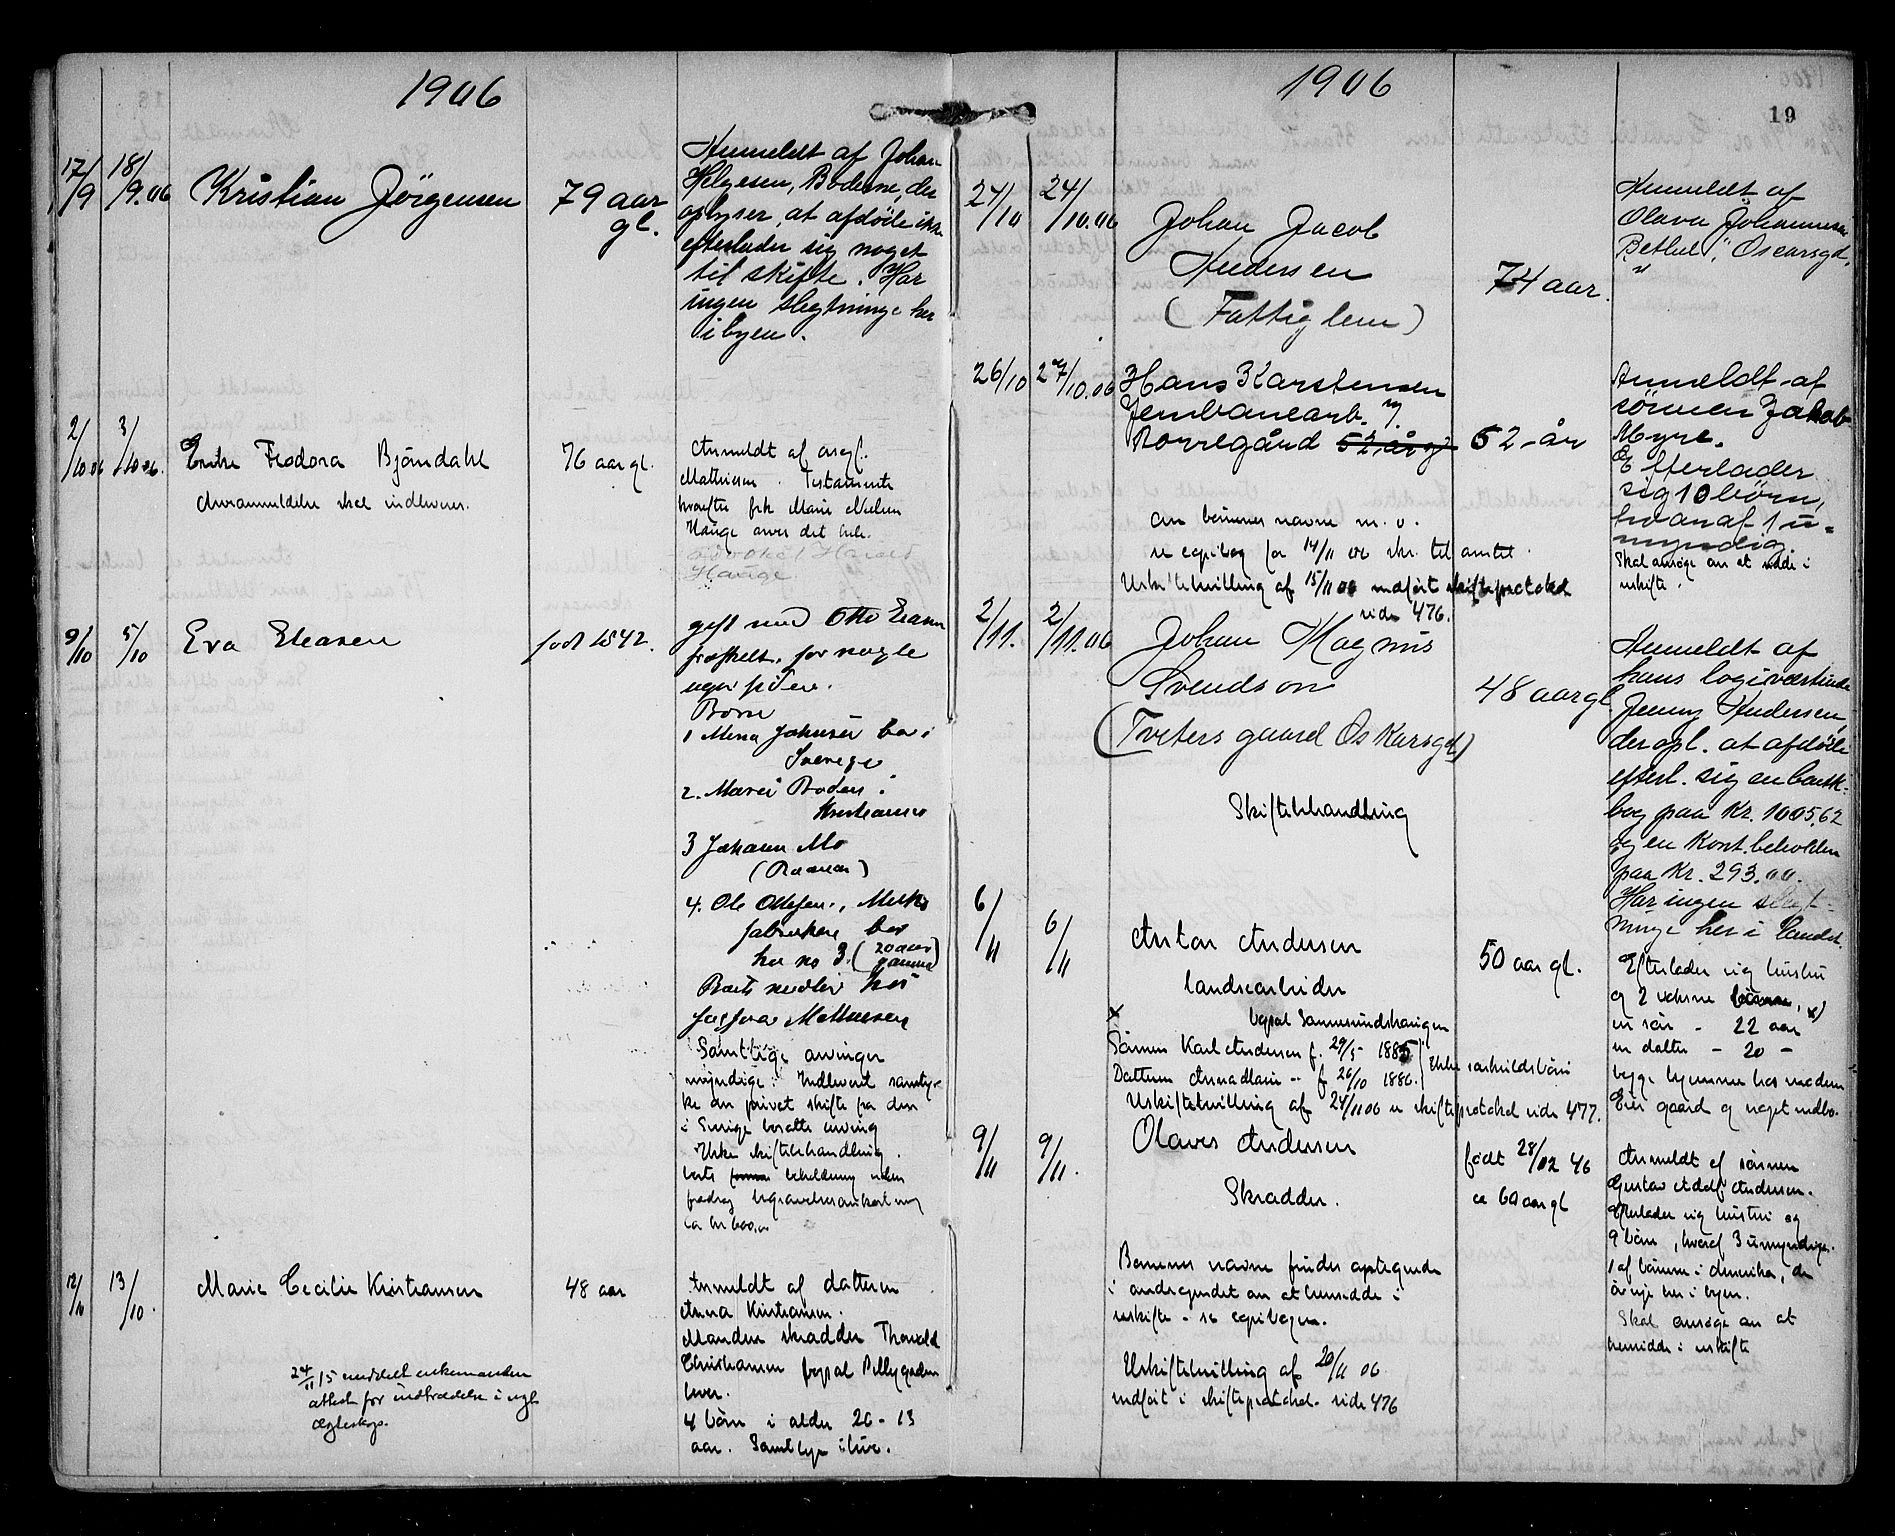 1906
17/9 18/9.06 Kristian Jörgensen 79 aar gl.
Anmeldt af Johan
Helgesen, Boderne, der
oplyser, at afdöde ikke
efterlader sig noget
til skifte. Har
ingen slegtninge her
i byen.
2/10 06 3/10 06. Enke Feodora Björndahl 76 aar gl.
Arveanmeldelse skal indleveres.
Anmeldt af
Mathiesen. Testamente
hvorefter frk Marie Nielsen
Hauge arver det hele.
advokat Harald
Hauge
9/10 5/10 Eva Eleasen født 1842.
gift med Otto Eleasen
fraskilt, for nogle
uger siden.
Børn
1 Mina Johnsen bor i
Sverige
2. Marie Boden i
Kristiania
3 Johanen Mo
(Ranen)
4. Ole Ottesen,
fabrikken bor
her no 3. (20 aar
gammel)
Boets midler hos
Mathiesen
Samtlige arvinger
myndige. Indleveret samtyk-
ke om privat skifte fra den
i Sverige bosatte arving
Ikke skiftebehandling.
boets beholdning uden
fradrag begravelsesomkostning
ca kr 600,00
12/10 13/10. Marie Cecilie Kristiansen 48 aar
Anmeldt af datteren
Anna Kristiansen.
Manden skrædder Thorvald
Christiansen
lever.
4 börn i alder 26 - 13
aar. Samtlige ilive.
24/11 15 meddelt enkemanden
attest for indtrædelse i nyt
ægteskap.
1906
19
24/10 24/10.06 Johan Jacob
Andersen
(Fattiglem)
74 aar.
Anmeldt af
Olava Johannesen
"Bethel", Oscarsgd.
26/10 27/10.06 Hans Karstensen
Jernbanearb.
Norregård 52 år gl 52-år
Anmeldt af
sönnen Jakob
Myre.
Efterlader
sig 10 börn,
hvoraf 1 u-
myndig.
Skal ansöge om at sidde i
uskifte.
om börnenes navne m. v.
se copibog for 14/11 06 skr. til amtet.
Uskiftebevilling af 15/11 06 indført skifteprotokol
side 476.
2/11. 2/11.06 Johan Magnus
Svendson
(Tveters gaard Oskarsgd)
48 aar gl.
Skiftebehandling
Anmeldt af
hans logiværtinde
Jenny Andersen,
der opl. at afdöde
efterl. sig en bank-
bog paa Kr. 1005,62
og en Kont. beholden
paa Kr. 293.00.
Har ingen slegt-
ninge her i landet.
6/11 6/11 Anton Andersen
landsearbeider
50 aar gl.
Efterlader sig hustru
og 2 voksne börn, x)
en sön - 22 aar
en datter - 20 -
begge hjemme hos moderen
Eier gaard og noget indbo.
x bopæl Sannesundshaugen
Sönnen Karl Andersen f. 29/5 1885
Datteren Anna Marie - f 26/10 1886. Ikke særkuldsbörn
Uskiftebevilling af 24/11 06 se skifteprotokol side 477.
9/11 9/11. Olaves Andersen
Skrædder.
født 28/02 46
ca 60 aar gl
Anmeldt af sönnen
Gustav Adolf Andersen.
Efterlader sig hustru og
9 börn, hvoraf 3 umyndige.
1 af börnene i Amerika, de
övrige her i byen.
Skal ansöge om at
hensidde i uskifte
Börnenes navne findes optegnede
i andragendet om at hensidde i
uskifte - se copibogen.
Uskiftebevilling af 20/11 06
indført i skifteprotokol side 476